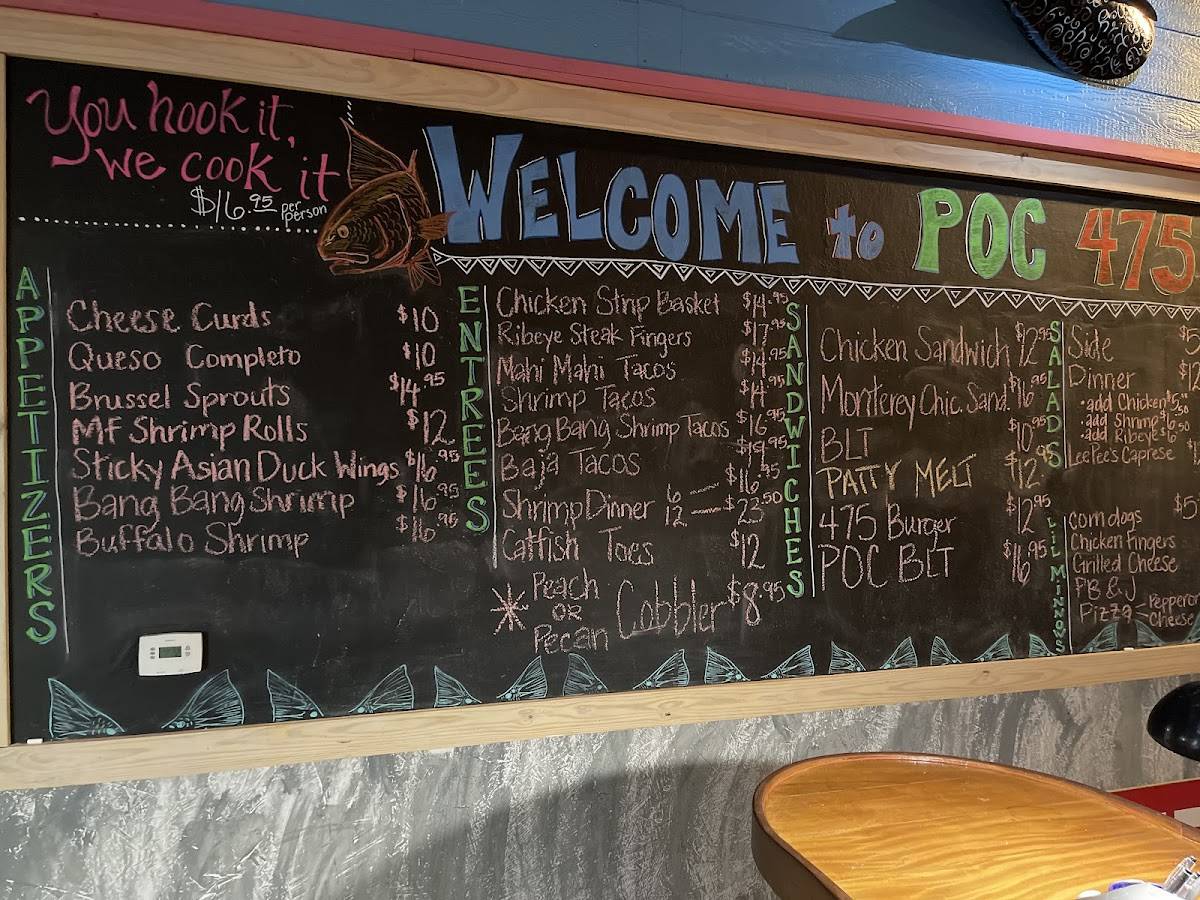 You hook it,
we cook it
$16.95 per person
WELCOME to POC 475
APPETIZERS
Cheese Curds $10
Queso Completo $10
Brussel Sprouts $14.95
MF Shrimp Rolls $12
Sticky Asian Duck Wings $16.95
Bang Bang Shrimp $16.95
Buffalo Shrimp $16.95
ENTREES
Chicken Strip Basket $14.95
Ribeye Steak Fingers $17.95
Mahi Mahi Tacos $14.95
Shrimp Tacos $14.95
Bang Bang Shrimp Tacos $16.95
Baja Tacos
Shrimp Dinner 6 — $16.95
12 — $23.50
Catfish Toes $12
* Peach
or
Pecan
Cobbler $8.95
SANDWICHES
Chicken Sandwich $12.95
Monterey Chic. Sand. $16.95
BLT $10.95
PATTY MELT $12.95
475 Burger $12.95
POC BLT $16.95
SALADS
Side
Dinner
• add Chicken
• add Shrimp $6.50
• add Ribeye $6
LeePee's Caprese
LIL MINNOWS
Corndogs $5
Chicken Fingers
Grilled Cheese
PB & J
Pizza
Cheese